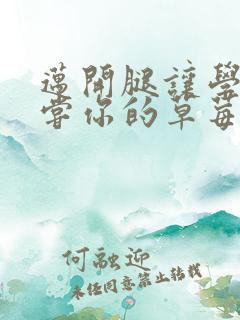 邁開腿讓學
當你的草莓
何融迎
未任同意禁止转载